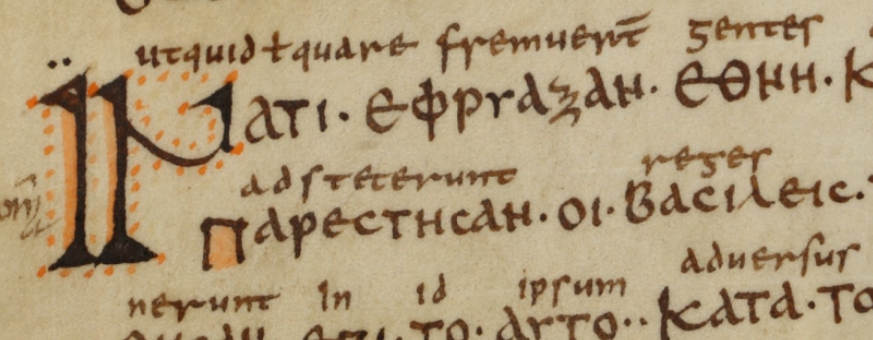 utquid ł quare fremuerт̄ gentes
ΙΝΑΤΙ· ΕΦΡΥΑΖΑΝ· ΕΘΝΗ· Κ
adsteterunt reges
ΠΑΡΕCΤΗCΑΝ· ΟΙ· ΒΑCΙΛΕΙC·
nerunt in id ipsum adversus
ΤΟ· ΑΥΤΟ·· ΚΑΤΑ· ΤΟ